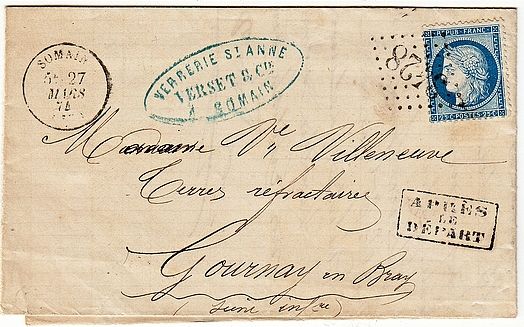 SOMAIN
5E 27
MARS
74
VERRERIE ST ANNE
VERSET & Cie
À SOMAIN
REPUB · FRANC ·
25 C POSTES 25 C
APRÈS
LE
DÉPART
Madame Ve Villeneuve
Terres réfractaires
Gournay en Bray
(Seine infre)